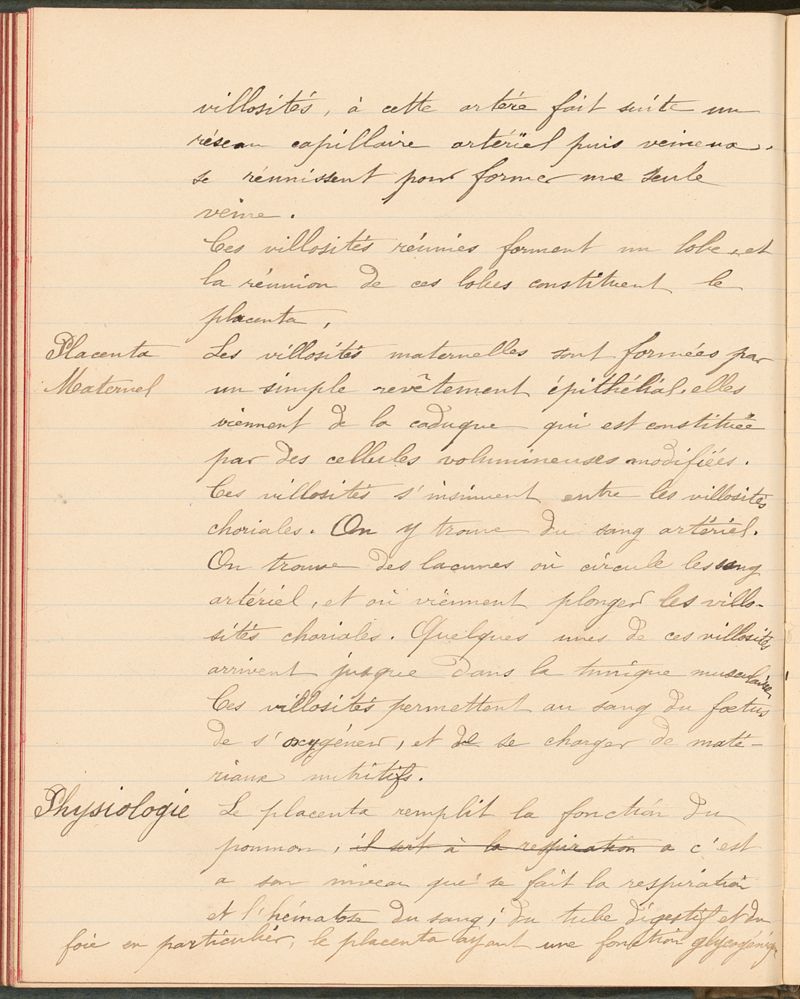 villosités, à cette artére fait suite un
réseau capillaire artériel puis veineux.
se réunissent pour former une seule
veine.
Ces villosités réunies forment un lobe, et
la réunion de ces lobes constituent le
placenta,
Placenta Maternel
Les villosités maternelles sont formées par
un simple revêtement épithélial, elles
viennent de la caduque qui est constituée
par des cellules volumineuses modifiées.
Ces villosités s'insinuent entre les villosités
choriales. On y trouve du sang artériel.
On trouve des lacunes où circule le sang
artériel, et où viennent plonger les villo-
sités choriales. Quelques unes de ces villosités
arrivent jusque dans la tunique musculaire
Ces villosités permettent au sang du fœtus
de s'oxygéner, et de se charger de maté-
riaux nutritifs.
Physiologie
Le placenta remplit la fonction du
poumon, il sert à la respiration a c'est
a son niveau que se fait la respiration
et l'hématose du sang; du tube digestif et du
foie en particulier, le placenta ayant une fonction glycogénique